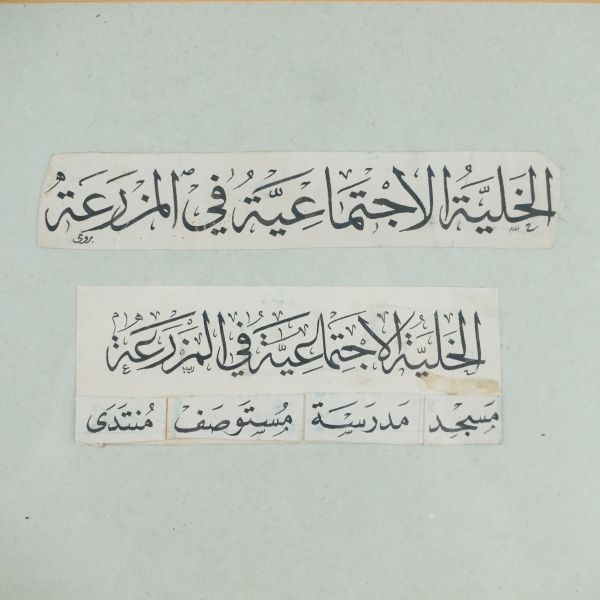 الخَليَّةُ الاجتِمَاعِيَّة في المَزرَعَة
الخَليَّةُ الاجتِمَاعِيَّة في المَزرَعَة
مَسجْد مَدرَسَة مُستَوصَف مُنتَدَى